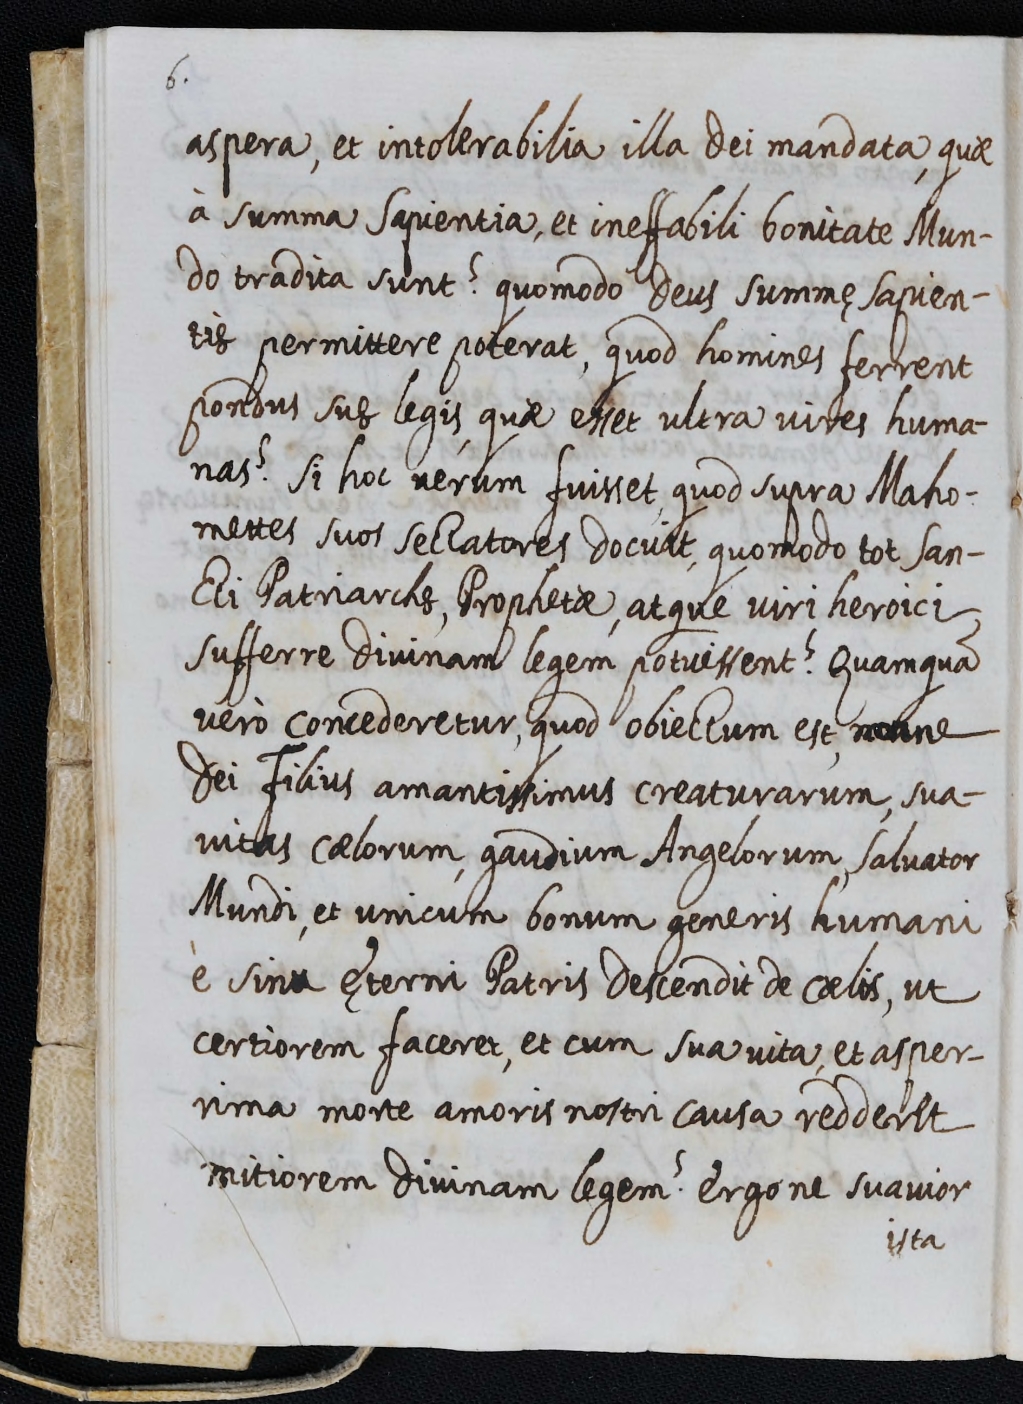 6.
aspera, et intolerabilia illa Dei mandata, quæ
à summa Sapientia, et ineffabili bonitate Mun-
do tradita sunt? quomodo Deus summę sapien-
tię permittere poterat, quod homines ferrent
pondus suę legis, quæ esset ultra vires huma-
nas? Si hoc verum fuisset, quod supra Maho-
mettes suos sectatores docuit, quomodo tot San-
cti Patriarchę, Prophetæ, atque viri heroici,
sufferre divinam legem potuissent? Quamquã
verò concederetur, quod obiectum est, nonne
Dei Filius amantissimus creaturarum, sua-
vitas cælorum, gaudium Angelorum, salvator
Mundi, et unicum bonum generis humani
è sinu ęterni Patris descendit de cælis, ut
certiorem faceret, et cum sua vita, et asper-
rima morte amoris nostri causa redderet
mitiorem divinam legem? Ergo ne suavior
ista